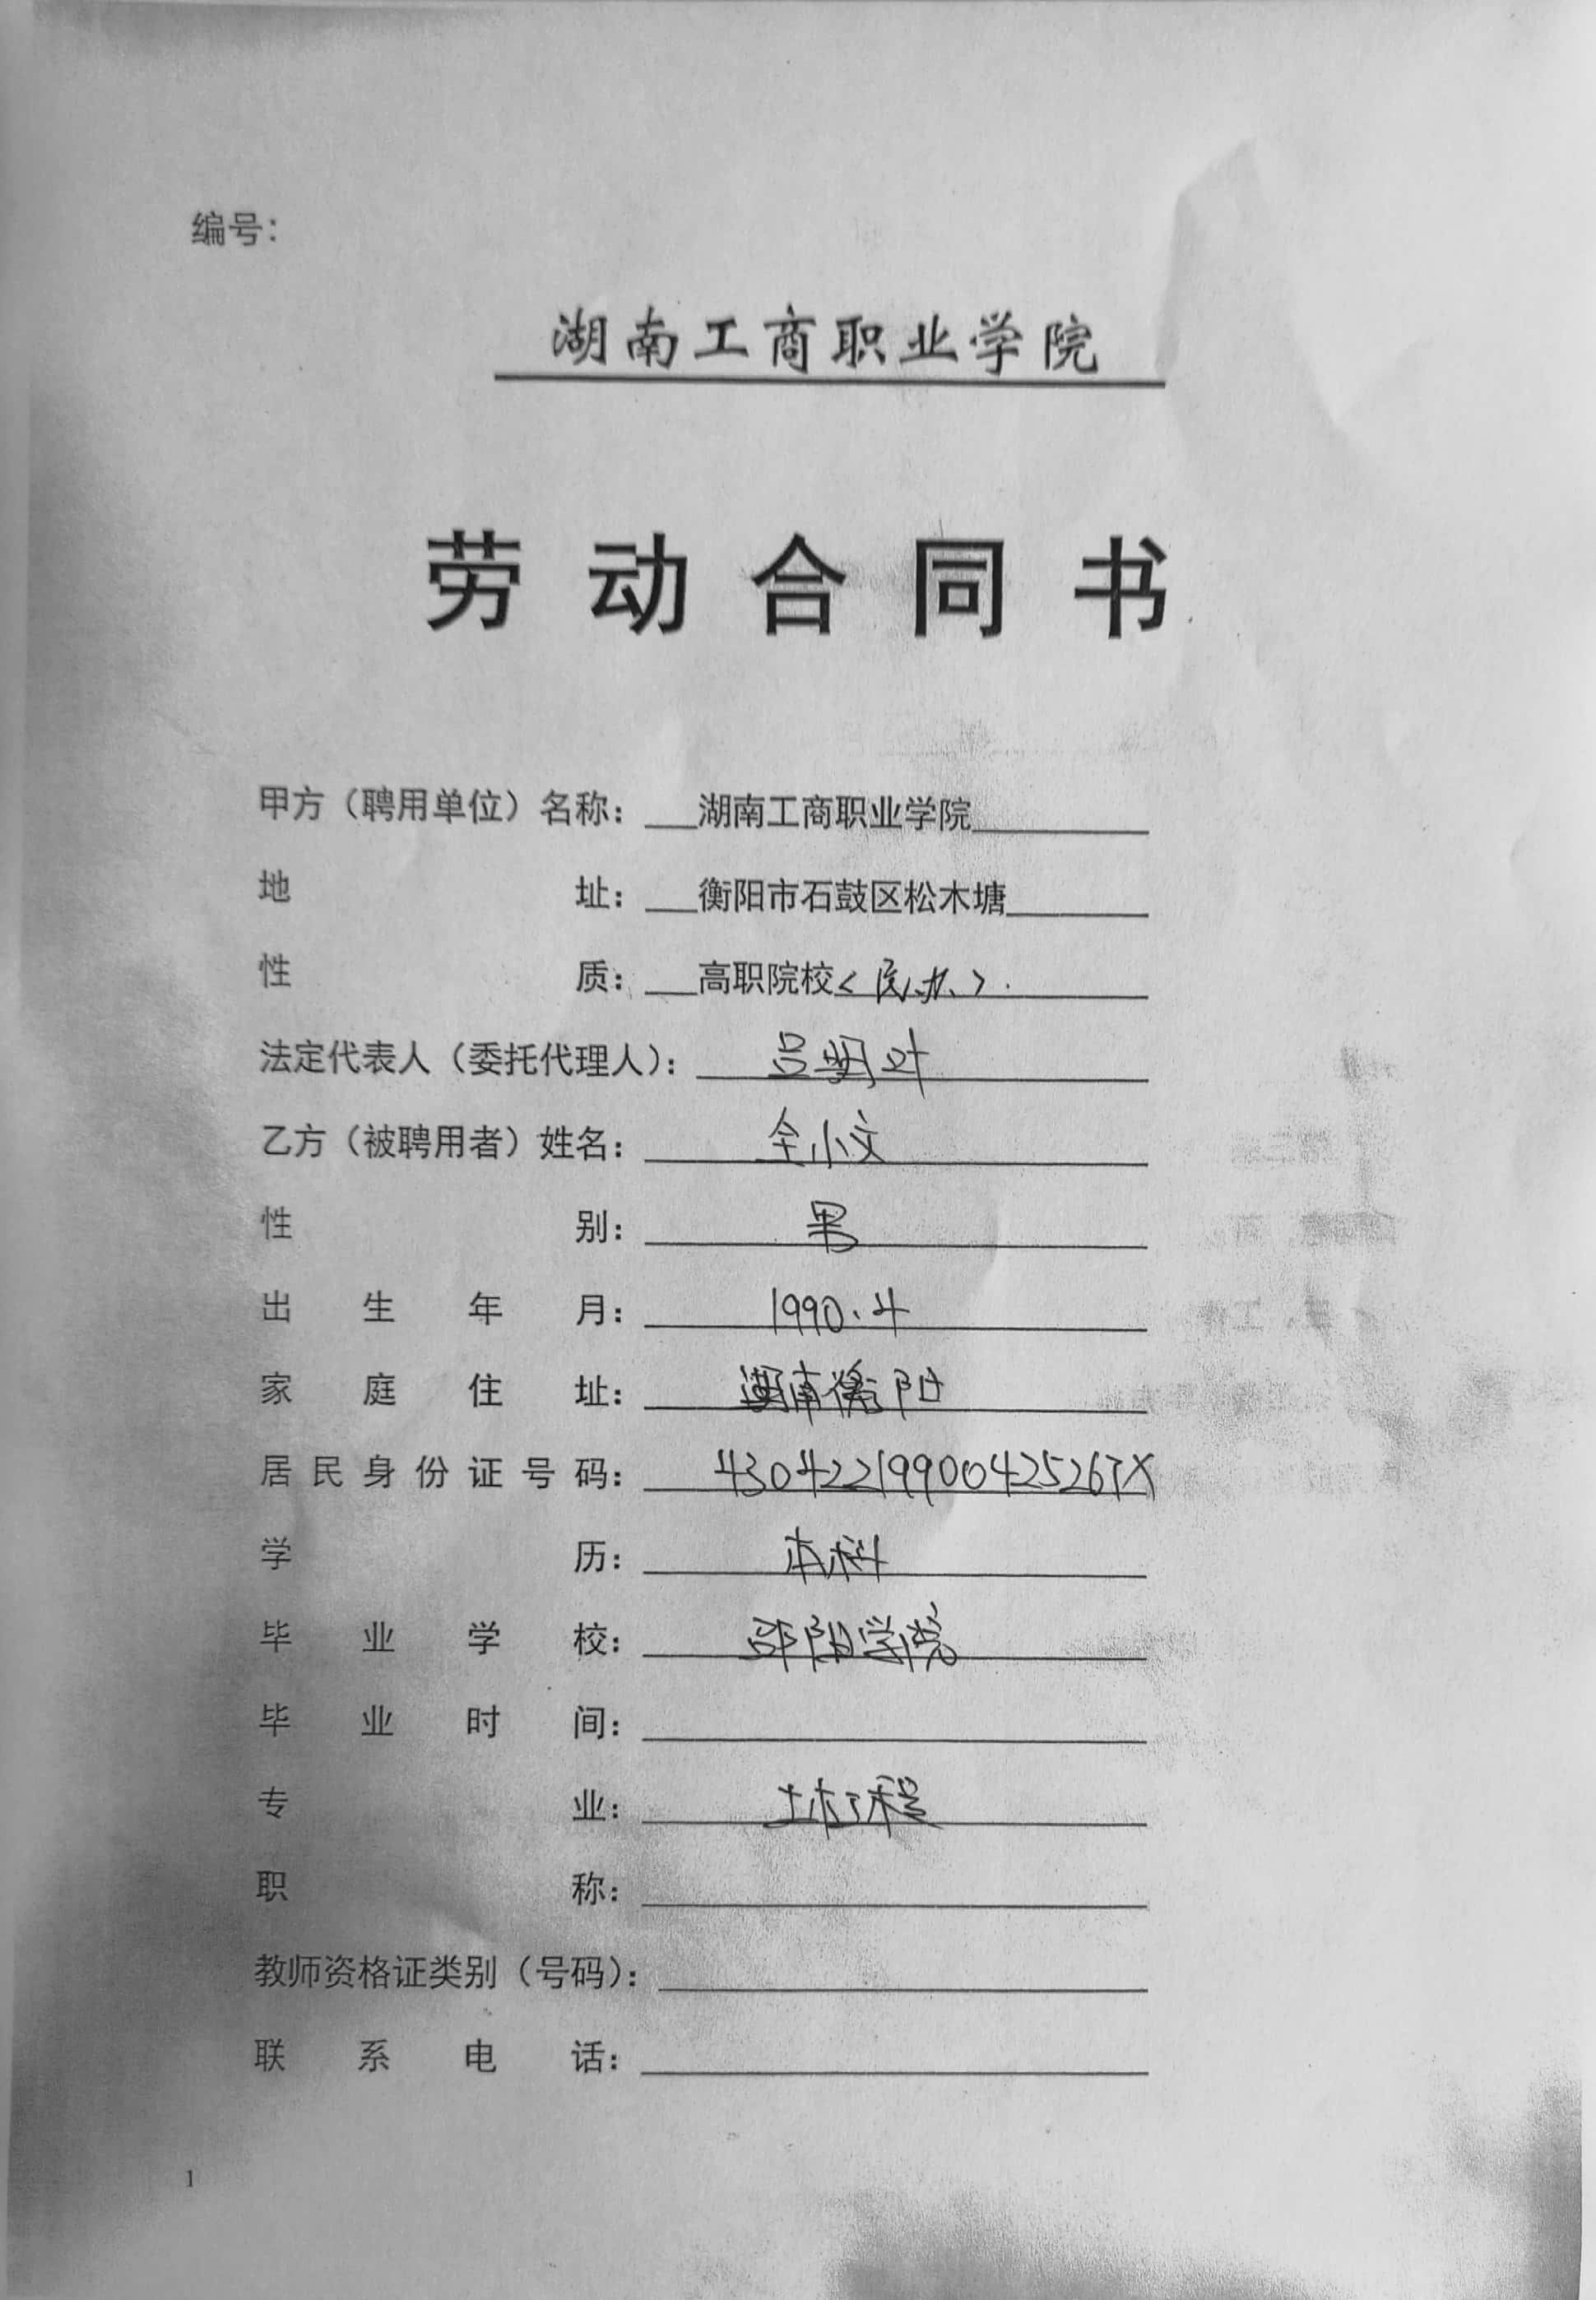 编号：
湖南工商职业学院
劳动合同书
甲方（聘用单位）名称：湖南工商职业学院
地址：衡阳市石鼓区松木塘
性质：高职院校<民办>.
法定代表人（委托代理人）：吕明叶
乙方（被聘用者）姓名：全小文
性别：男
出生年月：1990.4
家庭住址：湖南衡阳
居民身份证号码：43042219900425267X
学历：本科
毕业学校：邵阳学院
毕业时间：
专业：土木工程
职称：
教师资格证类别（号码）：
联系电话：
1